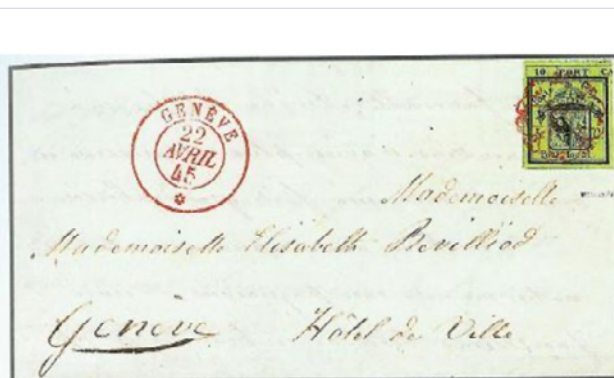 GENÈVE
22
AVRIL
45
10 PORT
Mademoiselle
Mademoiselle Elisabeth Revilliod
Genève Hôtel de Ville